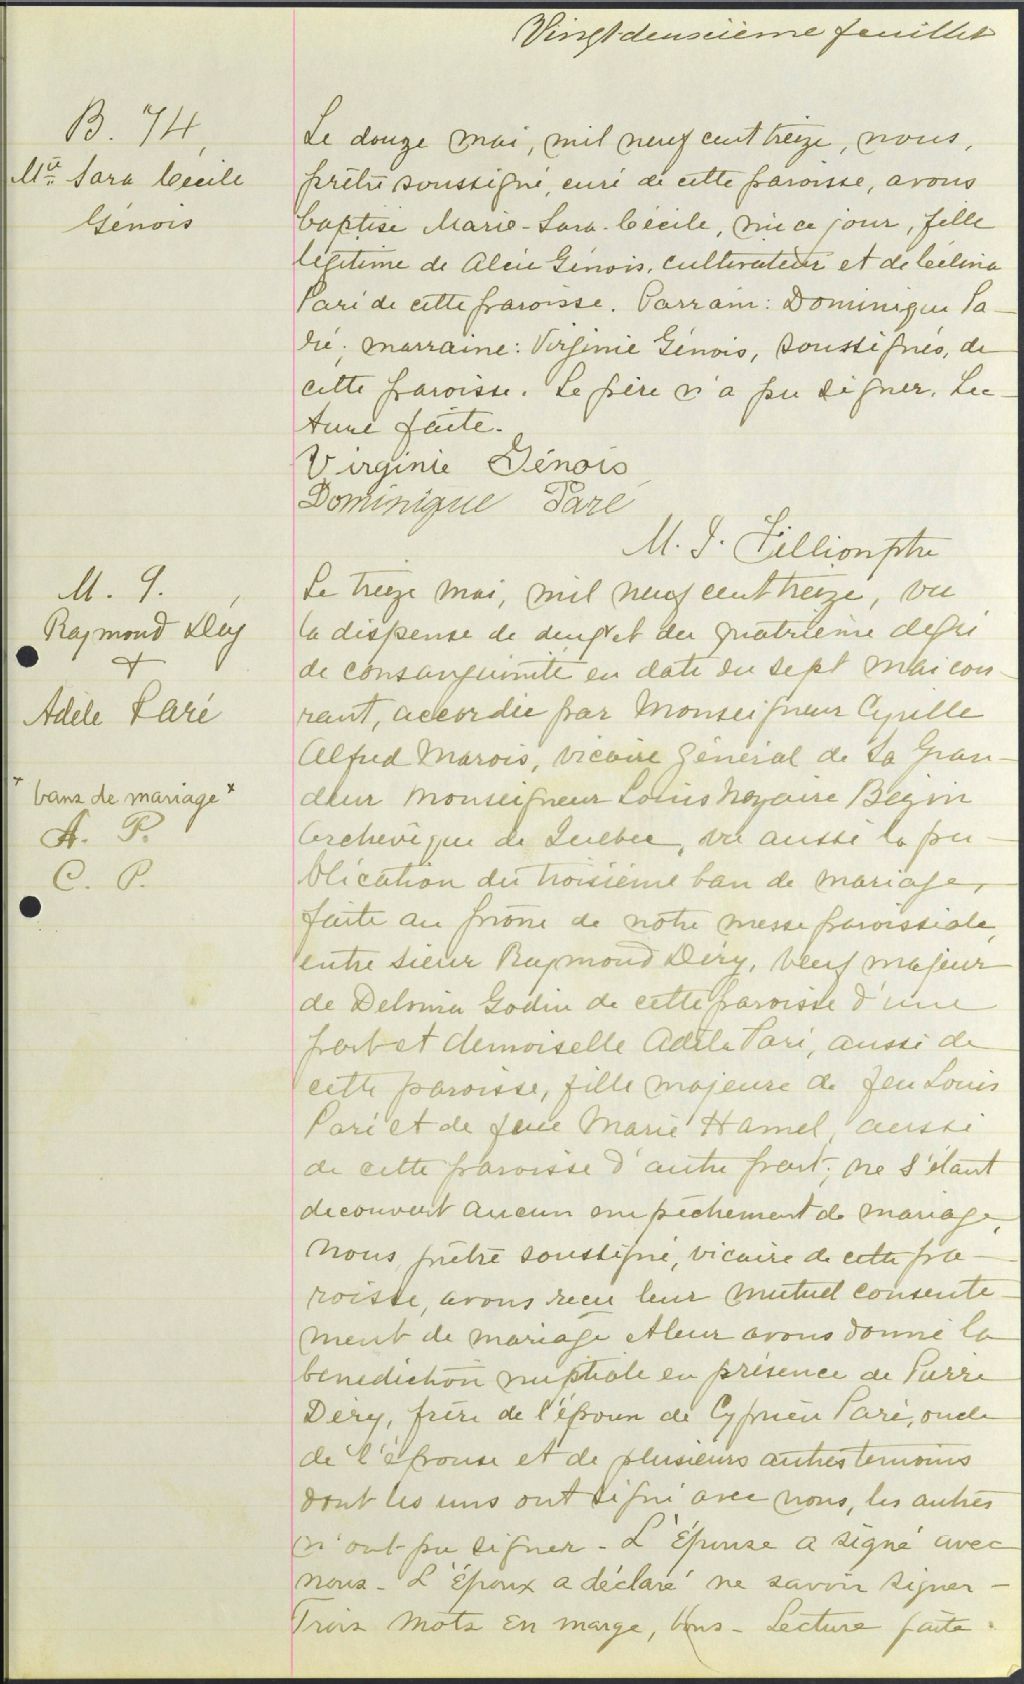 Vingt deuxième feuillet
B. 74,
Mie Sara Cécile
Génois
Le douze mai, mil neuf cent treize, nous,
prêtre soussigné, curé de cette paroisse, avons
baptisé Marie-Sara-Cécile, née ce jour, fille
légitime de Alcée Génois, cultivateur et de Célina
Paré de cette paroisse. Parrain: Dominique Pa-
ré; marraine: Virginie Génois, soussignés, de
cette paroisse. Le père n'a pu signer. Lec-
ture faite.
Virginie Génois
Dominique Paré
M. J. Fillion ptre
M. 9.
Raymond Déry
+
Adèle Paré
x bans de mariage x
A. P.
C. P.
Le treize mai, mil neuf cent treize, vu
la dispense de deux et du quatrième degré
de consanguinité en date du sept mai cou-
rant, accordée par Monseigneur Cyrille
Alfred Marois, vicaire général de Sa Gran-
deur Monseigneur Louis Nazaire Bégin
Archevêque de Québec, vu aussi la pu-
blication du troisième ban de mariage,
faite au prône de notre messe paroissiale,
entre Sieur Raymond Déry, veuf majeur
de Delvina Godin de cette paroisse d'une
part et demoiselle Adèle Paré, aussi de
cette paroisse, fille majeure de feu Louis
Paré et de feue Marie Hamel, aussi
de cette paroisse d'autre part; ne s'étant
découvert aucun empêchement de mariage,
Nous prêtre soussigné, vicaire de cette pa-
roisse, avons reçu leur mutuel consente-
ment de mariage et leur avons donné la
bénédiction nuptiale en présence de Pierre
Déry, frère de l'époux de Cyprien Paré, oncle
de l'épouse et de plusieurs autres témoins
dont les uns ont signé avec nous, les autres
n'ont pu signer - L'Épouse a signé avec
nous - L'Époux a déclaré ne savoir signer -
Trois mots en marge, bons - Lecture faite.